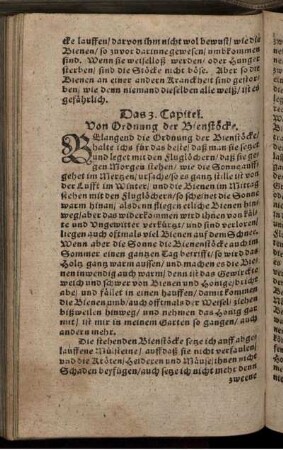 cke lauffen/ daryon ihm nicht wol bewust/ wie die
Bienen/ so zuvor darinne gewesen/ umbkommen
sind. Wenn sie weiselloß werden/ oder Hunger
sterben/ sind die Stöcke nicht böse. Aber so die
Bienen an einer andern Kranckheit sind gestor-
ben/ wie denn niemand dieselben alle weiß/ ist es
gefährlich.
Das 3. Capitel.
Von Ordnung der Bienstöcke.
BElangend die Ordnung der Bienstöcke/
halte ichs für das beste/ daß man sie setzet
und leget mit den Fluglöchern/ daß sie ge-
gen Morgen stehen/ wie die Sonne auff-
gehet im Mertzen/ ursache/ so es gantz stille ist von
der Lufft im Winter/ und die Bienen im Mittag
stehen mit den Fluglöchern/ so scheinet die Sonne
warm hinan/ alsdenn fliegen etliche Bienen hin-
weg/ aber das widerkommen wird ihnen von Käl-
te und Ungewitter verkürtzt/ und sind verloren/
liegen auch offtmals viel Bienen auff dem Schnee.
Wenn aber die Sonne die Bienenstöcke auch im
Sommer einen gantzen Tag betrifft/ so wird das
Holtz gantz warm aussen/ und machen es die Bie-
nen inwendig auch warm/ denn ist das Gewirckte
weich und schwer von der Bienen Honige/ bricht
abe/ und fället in einen hauffen/ damit kommen
die Bienen umb/ auch offtmals der Weisel/ ziehen
bißweilen hinweg/ und nehmen das Honig gar
mit/ ist mir in meinem Garten so gangen/ auch
andern mehr.
Die stehenden Bienstöcke setze ich auff abge-
lauffene Mülsteine/ auff daß sie nicht verfaulen/
und die Kröten/ Heideren und Mäuse/ ihnen nicht
Schaden beyfügen/ auch setze ich nicht mehr denn
zweene